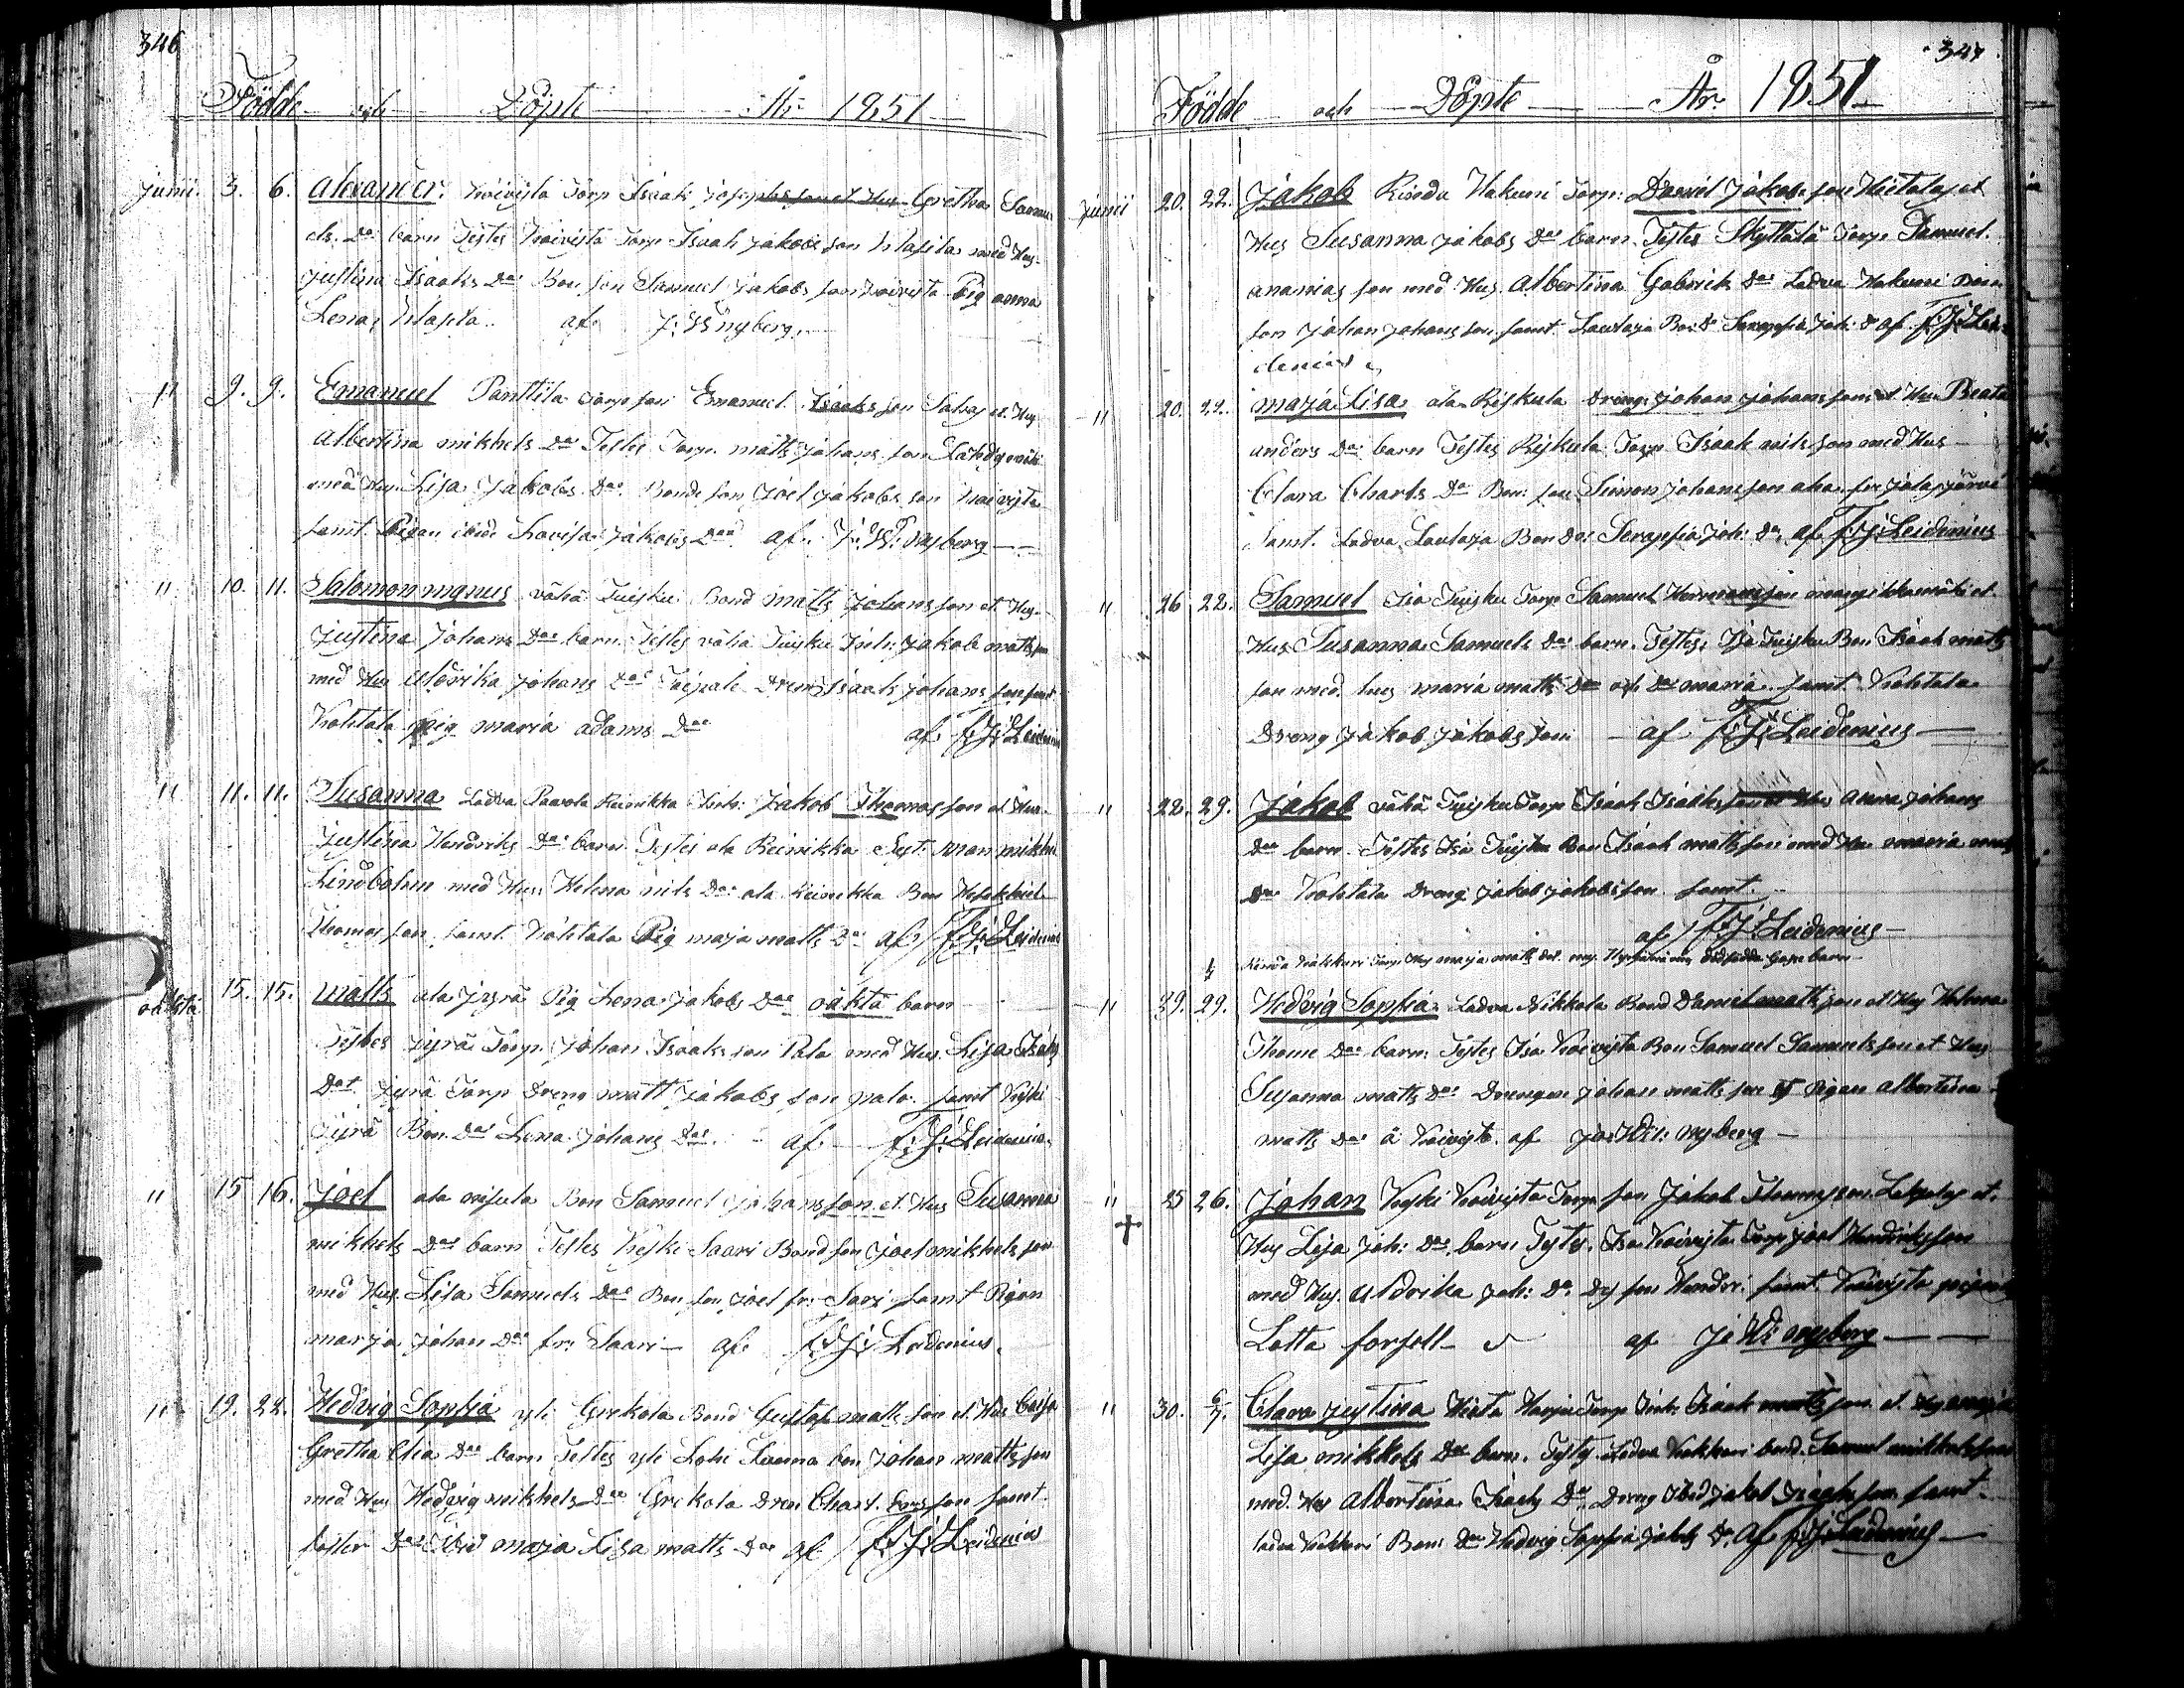 346
Födde och Döpte År 1851
Junii. 3. 6. Alexander. Koivista Torp Isaak Josephs son et Hus Gretha Samu
els Dr barn Testes Koivista Torp Isaak Jakobs son med Hus
Justina Isaaks Dr Bon son Samuel Jakobs son Koivista Pig anna
Lena af J: W: Nyberg.
11 9. 9. Emanuel Panttila Torp son Emanuel Isaaks son Salo et Hus
Albertina mikkels Dr Testes Torp matts Johans son
med Hus Lisa Jakobs Dr Bonde son Joel Jakobs son Koivista
samt Pigan ibid Lovisa Jakobs Dr af J: W: Nyberg
11 10. 11. Salomon magnus vähä Tuisku Bond matts Johans son et Hus
Justina Johans Dr barn Testes vähä Tuisku Inh: Jakob matts son
med Hus Uldrika Johans Dr Taipale Dren Isaak Johans son samt
Kohtala Pig maria adams Dr af F: J: Leidenius
11 11. 11. Susanna Ladva Paavola Reinikka Inh: Jakob Thomas son et Hus
Justina Hendriks Dr barn Testes ala Reinikka Syt man mikkel
Lindbohm med Hus Helena nils Dr ala Reinikka Bon
Thomas son samt Kohtala Pig maja matts Dr af F: J: Leidenius
oäkta 15. 15. Matts ala Jyrä Pig Lena Jakobs Dr oäkta barn
Testes Jyrä Torp Johan Isaaks son Palo med Hus Lisa Isaks
Dr Jyrä Torp Dreng matt Jakobs son palo samt Keski
Jyrä Bon Dr Lena Johans Dr af F: J: Leidenius
11 15 16. Joel ala nisula Bon Samuel Johans son et Hus Susanna
mikkels Dr barn Testes Keski Saari Bond son Joel mikkels son
med Hus Lisa Samuels Dr Bon son Joel fr: Sari samt Pigan
marja Johan Dr fr: Saari af F: J: Leidenius.
11 19. 22. Hedvig Sopfia yli Grekola Bond Gustaf matts son et Hus Caisa
Gretha Elia Dr barn Testes yli Lohi Luoma bon Johan matts son
med Hus Hedvig mikkels Dr Grekola Dren Charl son samt
foster Dr ibid maja Lisa matts Dr af F: J: Leidenius
347
Födde och Döpte År 1851
Junii 20. 22. Jakob Rinda Hakuni Torp: Daniel Jakobs son Hietala et
Hus Susanna Jakobs Dr barn. Testes Skyttälä Torp. Samuel
ananias son med Hus Albertina Gabriels Dr Ladva Hakuni Bon
son Johan Johans son samt Lautaja Bon Dr Serapfia Joh: Dr af F: J: Lei
denius
11 20. 22. Maja Lisa ala Riskula Dreng Johan Johans son et Hus Beata
anders Dr barn Testes Riskula Torp Isaak nils son med Hus
Clara Charls Dr Bon: son Simon Johans son aha fr Jalasjärvi
Samt. Ladva Lautaja Bon Dr Serapfia Joh: Dr af F: J: Leidenius
11 26 28. Samuel Isо Tuisku Torp Samuel Hermans son et
Hus Susanna Samuels Dr barn. Testes, Iso Tuisku Bon Isaak matts
son med hus maria matts Dr och Dr maria samt Kohtala
Dreng Jakob Jakobs son af F: J: Leidenius
11 28. 29. Jakob vähä Tuisku Torp Isaak Isaaks son et Hus Anna Johans
Dr barn Testes Iso Tuisku Bon Isaak matts son med Hus maria matts
Dr Kohtala Dreng Jakob Jakobs son samt.
af F: J: Leidenius
Torp Hus maja matts Dr dödfödda barn
11 29. 29. Hedvig Sopfia. Ladva Nikkola Bond Daniel matts son et Hus Helena
Thome Dr barn: Testes Iso Koivista Bon Samuel Samuels son et Hus
Susanna matts Dr Drengen Johan matts son et Pigan albertina
matts Dr å Koivisto af Jo: Wil: nyberg
11 25 26. Johan Keski Koivista Torp son Jakob Thomas son et
Hus Lisa Joh: Dr barn Testes. Iso Koivista Torp Joel Hendriks son
med Hus. Uldrika Joh: Dr Dr son Hendri. samt. Koivista pigan
Lotta forsell af Jo Wi: nyberg
11 30. 6/7. Clara Justina Hieta Harju Torp Inh: Isaak matts son et Hus maja
Lisa mikkels Dr barn. Testes Ladva Kekkuri bond. Samuel mikkels son
med Hus Albertina Isaaks Dr Dreng ibid Jakob Isaaks son samt
ladva Kekkuri Bon: Dr Hedvig Sopfia Jakobs Dr af F: J: Leidenius